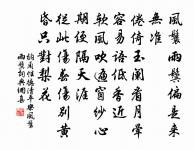 風鬟雨鬢偏是來
無準
倦倚玉闌看月暈
容易語低香近
軟風吹過窗紗心
期便隔天涯
從此傷春傷別黃
昏只對梨花
納蘭性德清平樂風鬟
雨鬢詞典網集